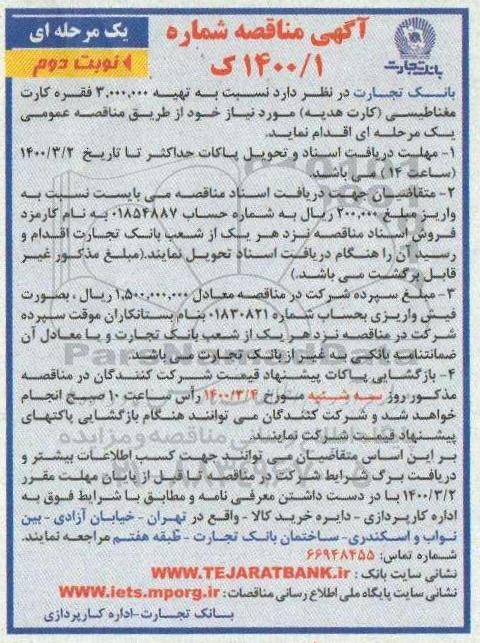 بانک تجارت
آگهی مناقصه شماره
۱۴۰۰/۱ ک
یک مرحله ای
نوبت دوم
بانک تجارت در نظر دارد نسبت به تهیه ۳,۰۰۰,۰۰۰ فقره کارت
مغناطیسی (کارت هدیه) مورد نیاز خود از طریق مناقصه عمومی
یک مرحله ای اقدام نماید.
۱- مهلت دریافت اسناد و تحویل پاکات حداکثر تا تاریخ ۱۴۰۰/۳/۲
(ساعت ۱۴) می باشد.
۲- متقاضیان جهت دریافت اسناد مناقصه می بایست نسبت به
واریز مبلغ ۲۰۰,۰۰۰ ریال به شماره حساب ۰۱۸۵۴۸۸۷ به نام کارمزد
فروش اسناد مناقصه نزد هر یک از شعب بانک تجارت اقدام و
رسید آن را هنگام دریافت اسناد تحویل نمایند.(مبلغ مذکور غیر
قابل برگشت می باشد.)
۳- مبلغ سپرده شرکت در مناقصه معادل ۱,۵۰۰,۰۰۰,۰۰۰ ریال ، بصورت
فیش واریزی بحساب شماره ۰۱۸۳۰۸۲۱ بنام بستانکاران موقت سپرده
شرکت در مناقصه نزد هر یک از شعب بانک تجارت و یا معادل آن
ضمانتنامه بانکی به غیر از بانک تجارت می باشد.
۴- بازگشایی پاکات پیشنهاد قیمت شرکت کنندگان در مناقصه
مذکور روز سه شنبه مورخ ۱۴۰۰/۳/۴ رأس ساعت ۱۰ صبح انجام
خواهد شد و شرکت کنندگان می توانند هنگام بازگشایی پاکتهای
پیشنهاد قیمت شرکت نمایند.
بر این اساس متقاضیان می توانند جهت کسب اطلاعات بیشتر و
دریافت برگ شرایط شرکت در مناقصه تا قبل از پایان مهلت مقرر
۱۴۰۰/۳/۲ با در دست داشتن معرفی نامه و مطابق با شرایط فوق به
اداره کارپردازی - دایره خرید کالا - واقع در تهران - خیابان آزادی - بین
نواب و اسکندری- ساختمان بانک تجارت - طبقه هفتم مراجعه نمایند.
شماره تماس: ۶۶۹۴۸۴۵۵
نشانی سایت بانک : WWW.TEJARATBANK.ir
نشانی سایت پایگاه ملی اطلاع رسانی مناقصات : www.iets.mporg.ir
بانک تجارت-اداره کارپردازی